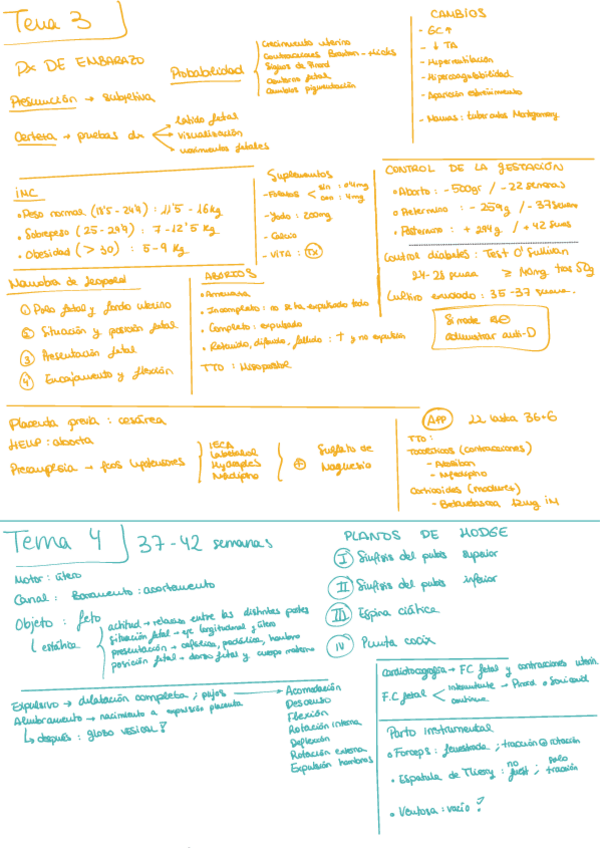 Tema 3
DX DE EMBARAZO
Presunción → subjetiva
Certeza → pruebas dx
latido fetal
visualización
movimientos fetales
Probabilidad
Crecimiento uterino
Contracciones Braxton-Hicks
Signos de Pinard
Contorno fetal
Cambios pigmentación
CAMBIOS
- GC ↑
- ↓ TA
- Hiperventilación
- Hipercoagulabilidad
- Aparición estreñimiento
- Mamas: tubérculos Montgomery
IMC
• Peso normal (18'5 - 24'9) : 11'5 - 16kg
• Sobrepeso (25 - 29'9) : 7 - 12'5 kg
• Obesidad (> 30) : 5 - 9 kg
Suplementos
sin : 0'4mg
con : 4mg
- Yodo : 200mg
- Calcio
- VITA : TX
CONTROL DE LA GESTACIÓN
• Aborto : - 500gr / - 22 semanas
• Pretermino : - 259g / - 37 semanas
• Postermino : + 294g / + 42 sems
Control diabetes : Test O'Sullivan
24-28 semana ≥ 140mg tras 50g
Cultivo : 35-37 semana.
Si madre
administrar anti-D
Maniobra de Leopold
① Polo fetal y fondo uterino
② Situación y posición fetal
③ Presentación fetal
④ Encajamiento y flexión
ABORTOS
• Amenaza
• Incompleto : no se ha expulsado todo
• Completo : expulsado
• Retenido, diferido, fallido : † y no expulsión
TTO : Misoprostol
Placenta previa : cesárea
HELLP : aborto
Preeclampsia → fcos hipotensores
Labetalol
Hydrapres
Nifedipino
+ Sulfato de
Magnesio
APP 22 hasta 36+6
TTO :
Tocolíticos (contracciones)
- Atosiban
- Nifedipino
Corticoides (madurez)
- Betametasona 12mg IM
Tema 4
37-42 semanas
Motor : útero
Canal : Borramiento : acortamiento
Objeto : feto
estática
actitud → relación entre las distintas partes
situación fetal → eje longitudinal y útero
presentación → cefálica, podálica, hombro
posición fetal → dorso fetal y cuerpo materno
PLANOS DE HODGE
I Sínfisis del pubis superior
II Sínfisis del pubis inferior
III Espina ciática
IV Punta coxis
Expulsivo → dilatación completa ; pujos →
Alumbramiento → nacimiento a expulsión placenta
↳ después : globo vesical?
Acomodación
Descenso
Flexión
Rotación interna
Deflexión
Rotación externa
Expulsión hombros
Cardiotocografía → FC fetal y contracciones uterin.
F.C fetal
intermitente → Pinard o Sonicaid
continua
Parto instrumental
• Forceps : fenestrada ; tracción rotación
• Espátula de Thierry : no ; solo tracción
• Ventosa : vacío ?